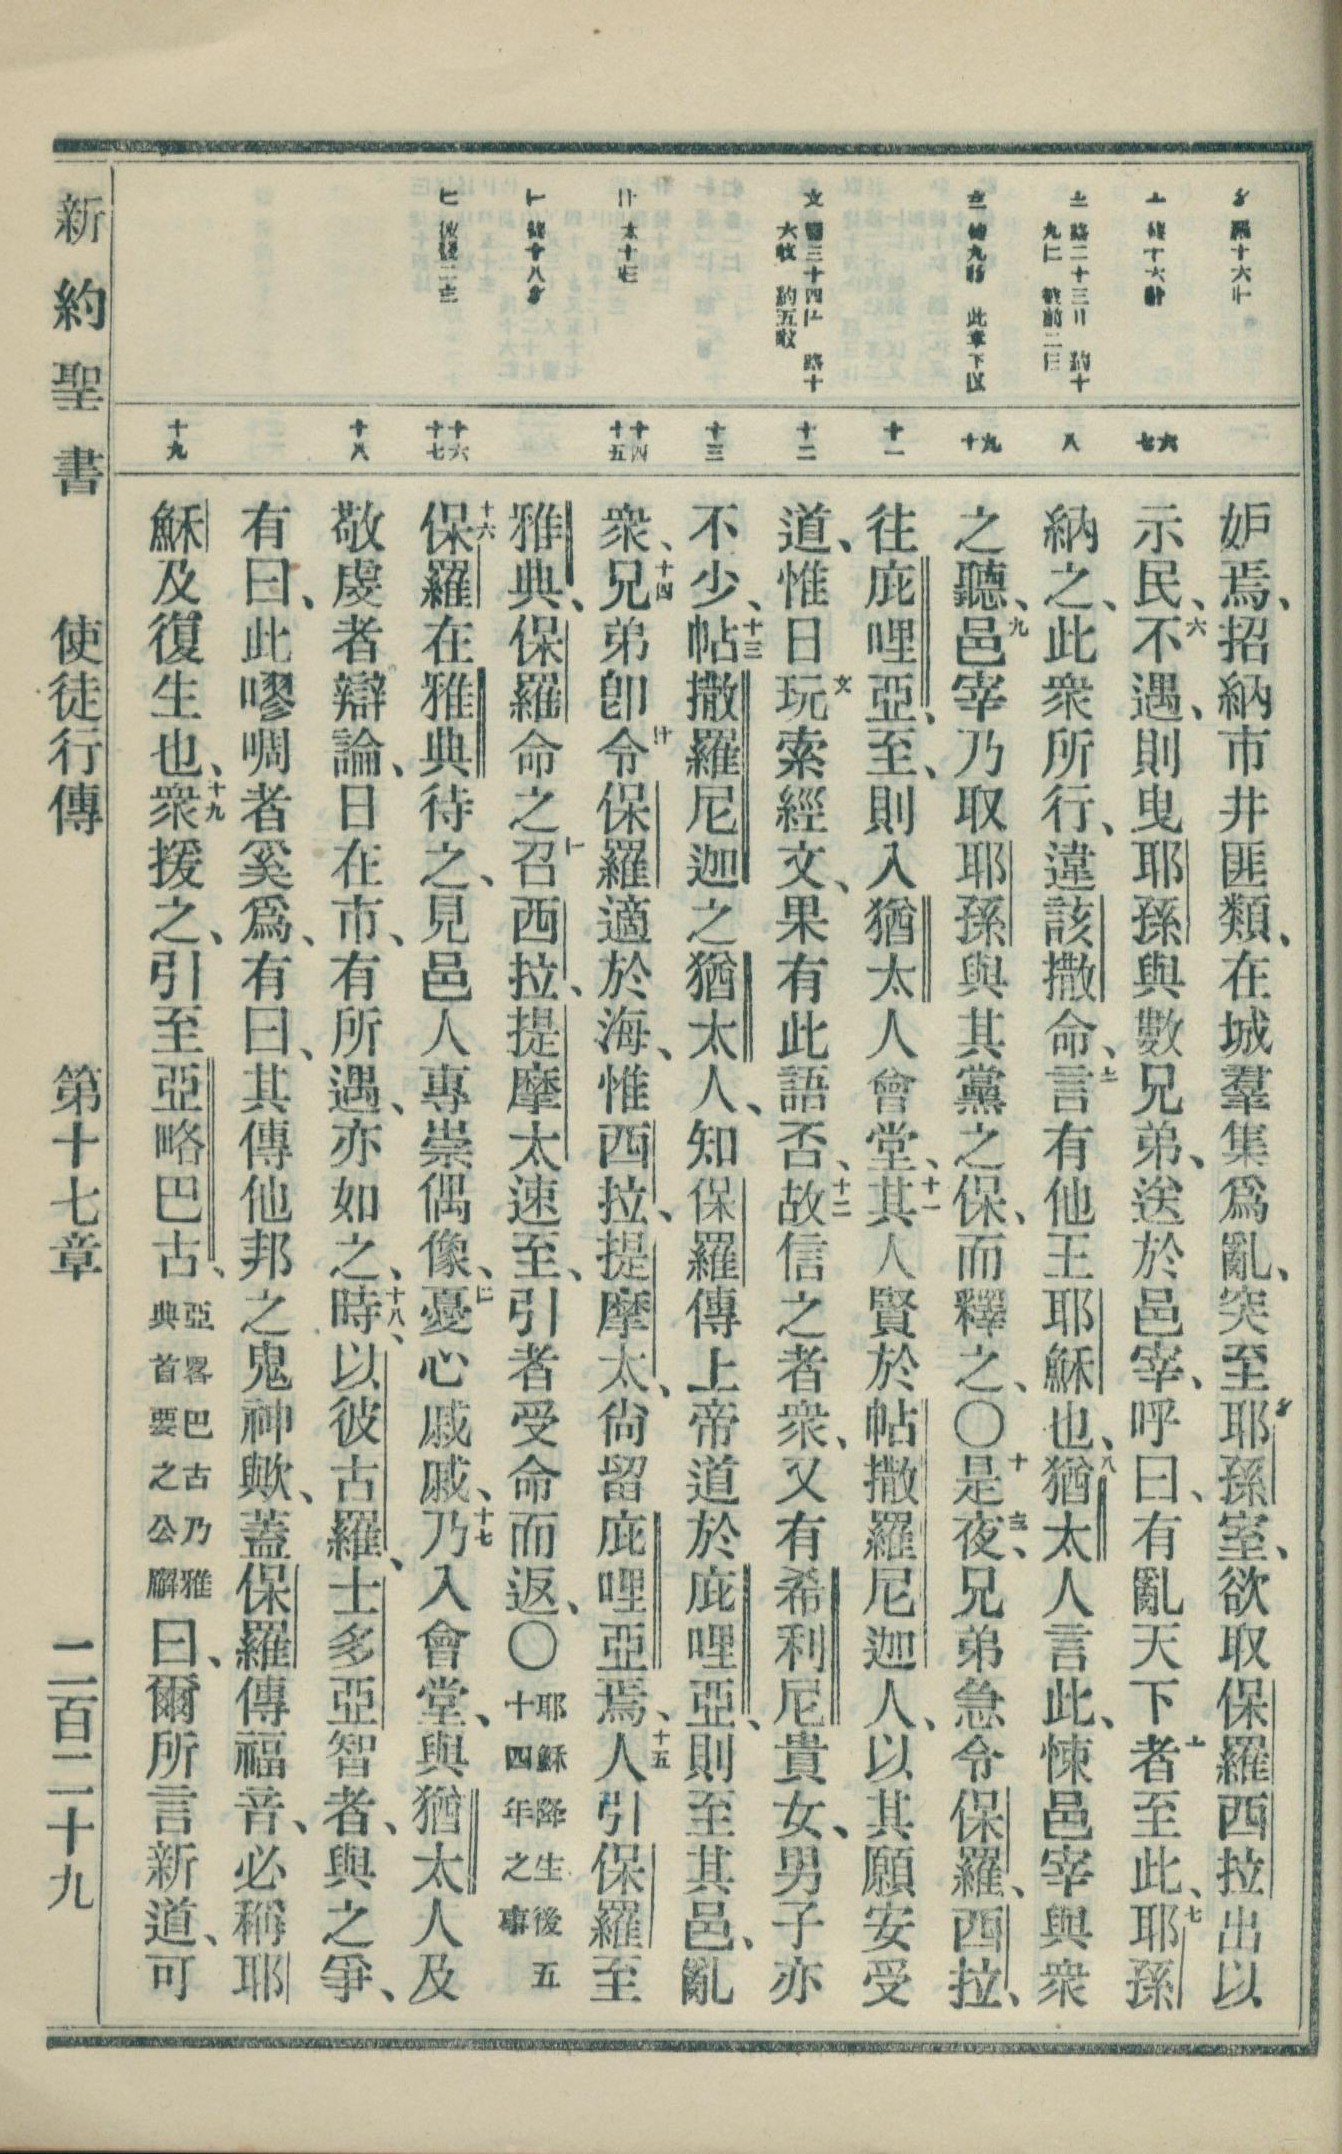 妒焉、招納市井匪類、在城羣集爲亂、突至耶孫室、欲取保羅西拉出以
示民、六不遇、則曳耶孫與數兄弟、送於邑宰、呼曰、有亂天下者至此、七耶孫
納之、此衆所行、違該撒命、言有他王耶穌也、八猶太人言此、悚邑宰與衆
之聽、九邑宰乃取耶孫與其黨之保、而釋之、〇十是夜、兄弟急令保羅、西拉、
往庇哩亞、至、則入猶太人會堂、十一其人賢於帖撒羅尼迦人、以其願安受
道、惟日玩索經文、果有此語否、十二故信之者衆、又有希利尼貴女、男子亦
不少、十三帖撒羅尼迦之猶太人、知保羅傳上帝道於庇哩亞、則至其邑、亂
衆、十四兄弟卽令保羅適於海、惟西拉、提摩太、尙留庇哩亞焉、十五人引保羅至
雅典、保羅命之召西拉、提摩太速至、引者受命而返、〇耶穌降生後五十四年之事
十六保羅在雅典待之、見邑人專崇偶像、憂心戚戚、十七乃入會堂、與猶太人及
敬虔者辯論、日在市、有所遇、亦如之、十八時、以彼古羅、士多亞智者、與之爭、
有曰、此嘐啁者奚爲、有曰、其傳他邦之鬼神歟、蓋保羅傳福音、必稱耶
穌及復生也、十九衆援之、引至亞略巴古、亞畧巴古乃雅典首要之公廨曰、爾所言新道、可
六
七
八
九
十
十一
十二
十三
十四
十五
十六
十七
十八
十九
新約聖書 使徒行傳 第十七章 二百二十九